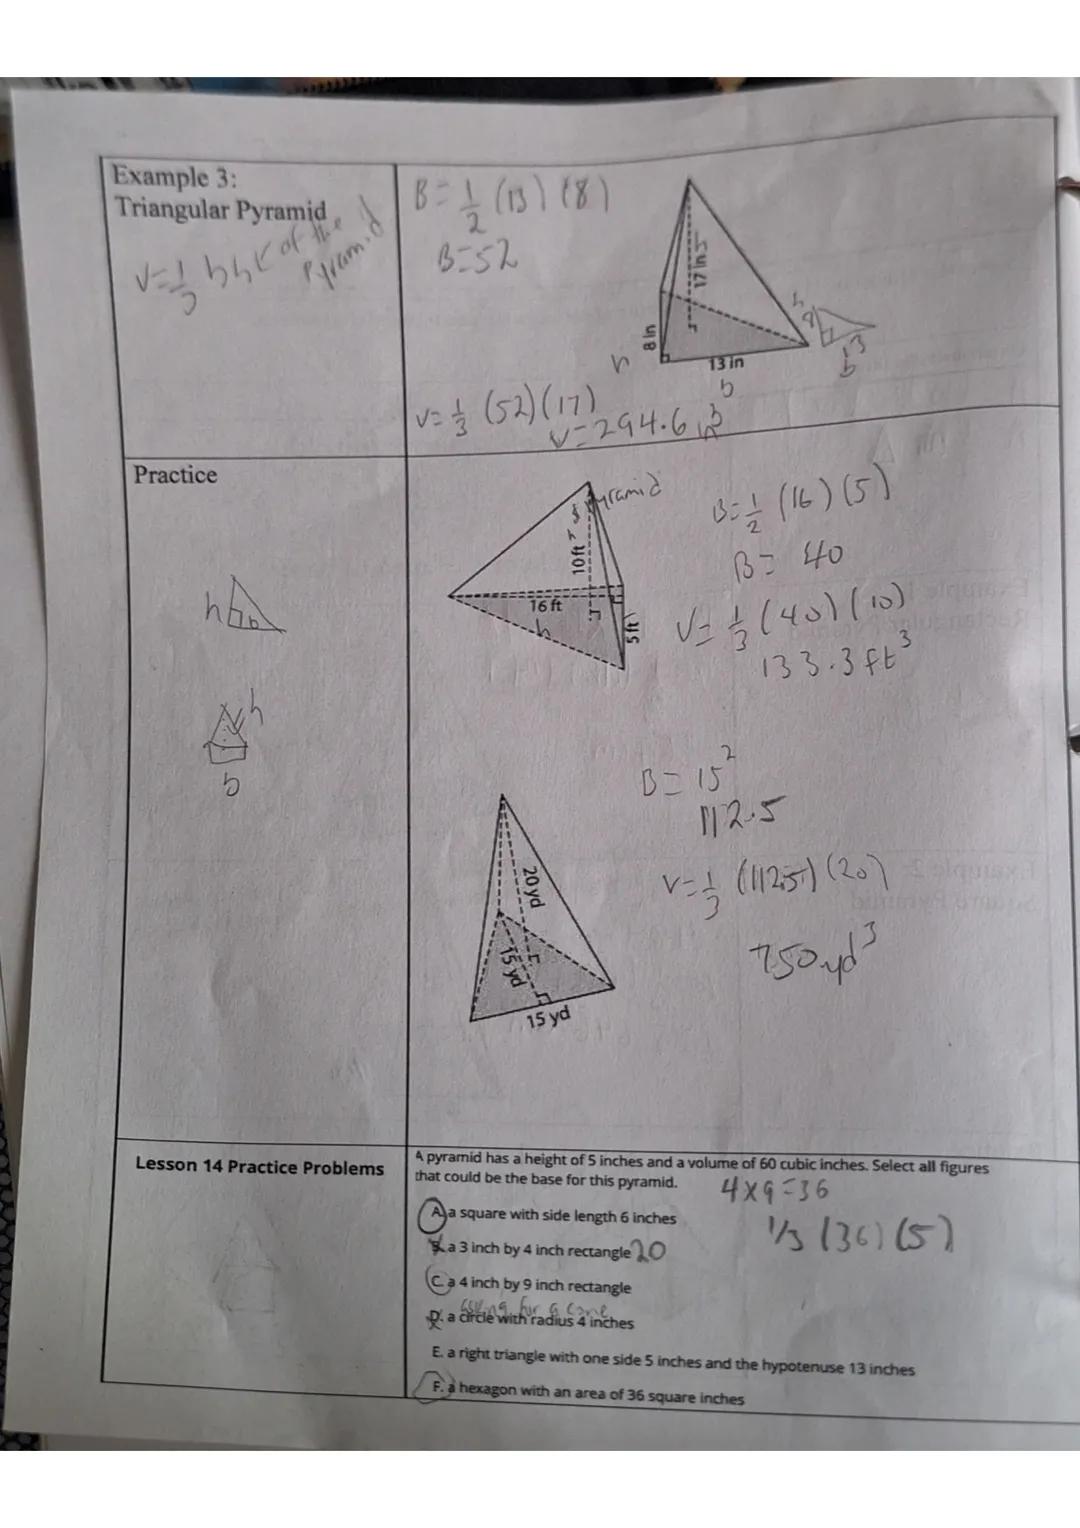 Example 3:
Triangular Pyramid
V=1/3 bh < of the
Pyramid
B=1/2 (13) (8)
B=52
17 in
8 in
h
13 in
b
h
8
13
b
V=1/3 (52)(17)
V=294.6 in³
Practice
Pyramid
10ft
16 ft
h
5 ft
B=1/2 (16)(5)
B= 40
V=1/3 (40)(10)
133.3 ft³
h
b
h
b
B= 15²
112.5
V=1/3 (112.5)(20)
750 yd³
20 yd
15 yd
15 yd
Lesson 14 Practice Problems
A pyramid has a height of 5 inches and a volume of 60 cubic inches. Select all figures
that could be the base for this pyramid.
4x9=36
1/3 (36)(5)
A. a square with side length 6 inches
B. a 3 inch by 4 inch rectangle 20
C. a 4 inch by 9 inch rectangle
asking for a cone
D. a circle with radius 4 inches
E. a right triangle with one side 5 inches and the hypotenuse 13 inches
F. a hexagon with an area of 36 square inches